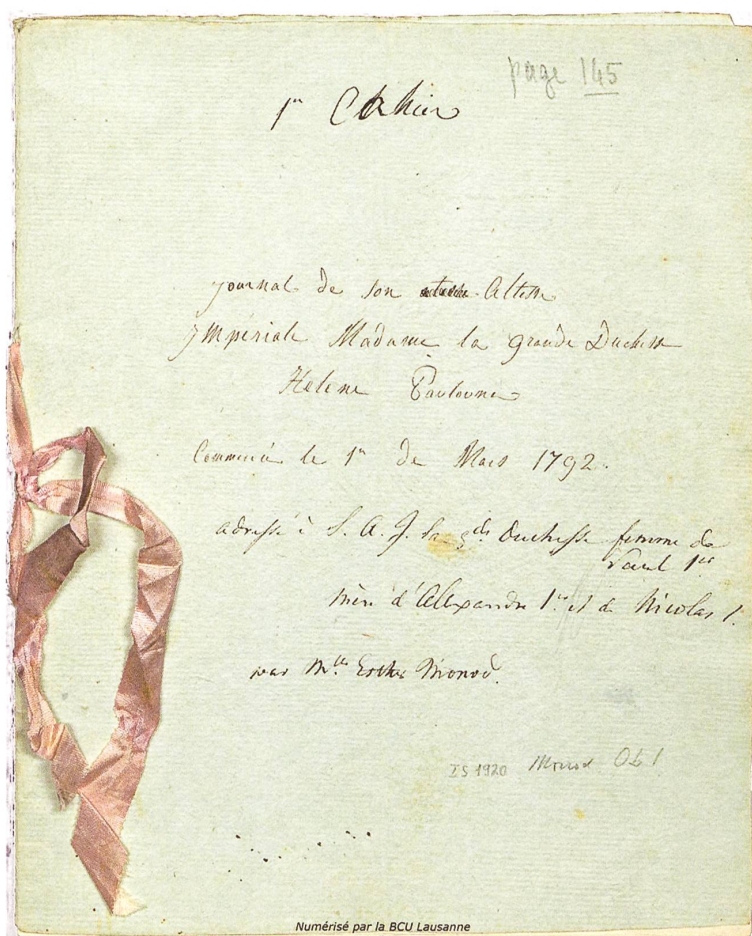 page 145
1er Cahier
journal de son Altesse
Impériale Madame la grande Duchesse
Helene Paulovna
Commencé le 1er de Mars 1792.
adressé à S. A. J. la gde Duchesse femme de
Paul 1er
mère d'Alexandre 1er et de Nicolas 1.
par Mlle Esther Monod.
IS 1920 Monod Ob 1
Numérisé par la BCU Lausanne